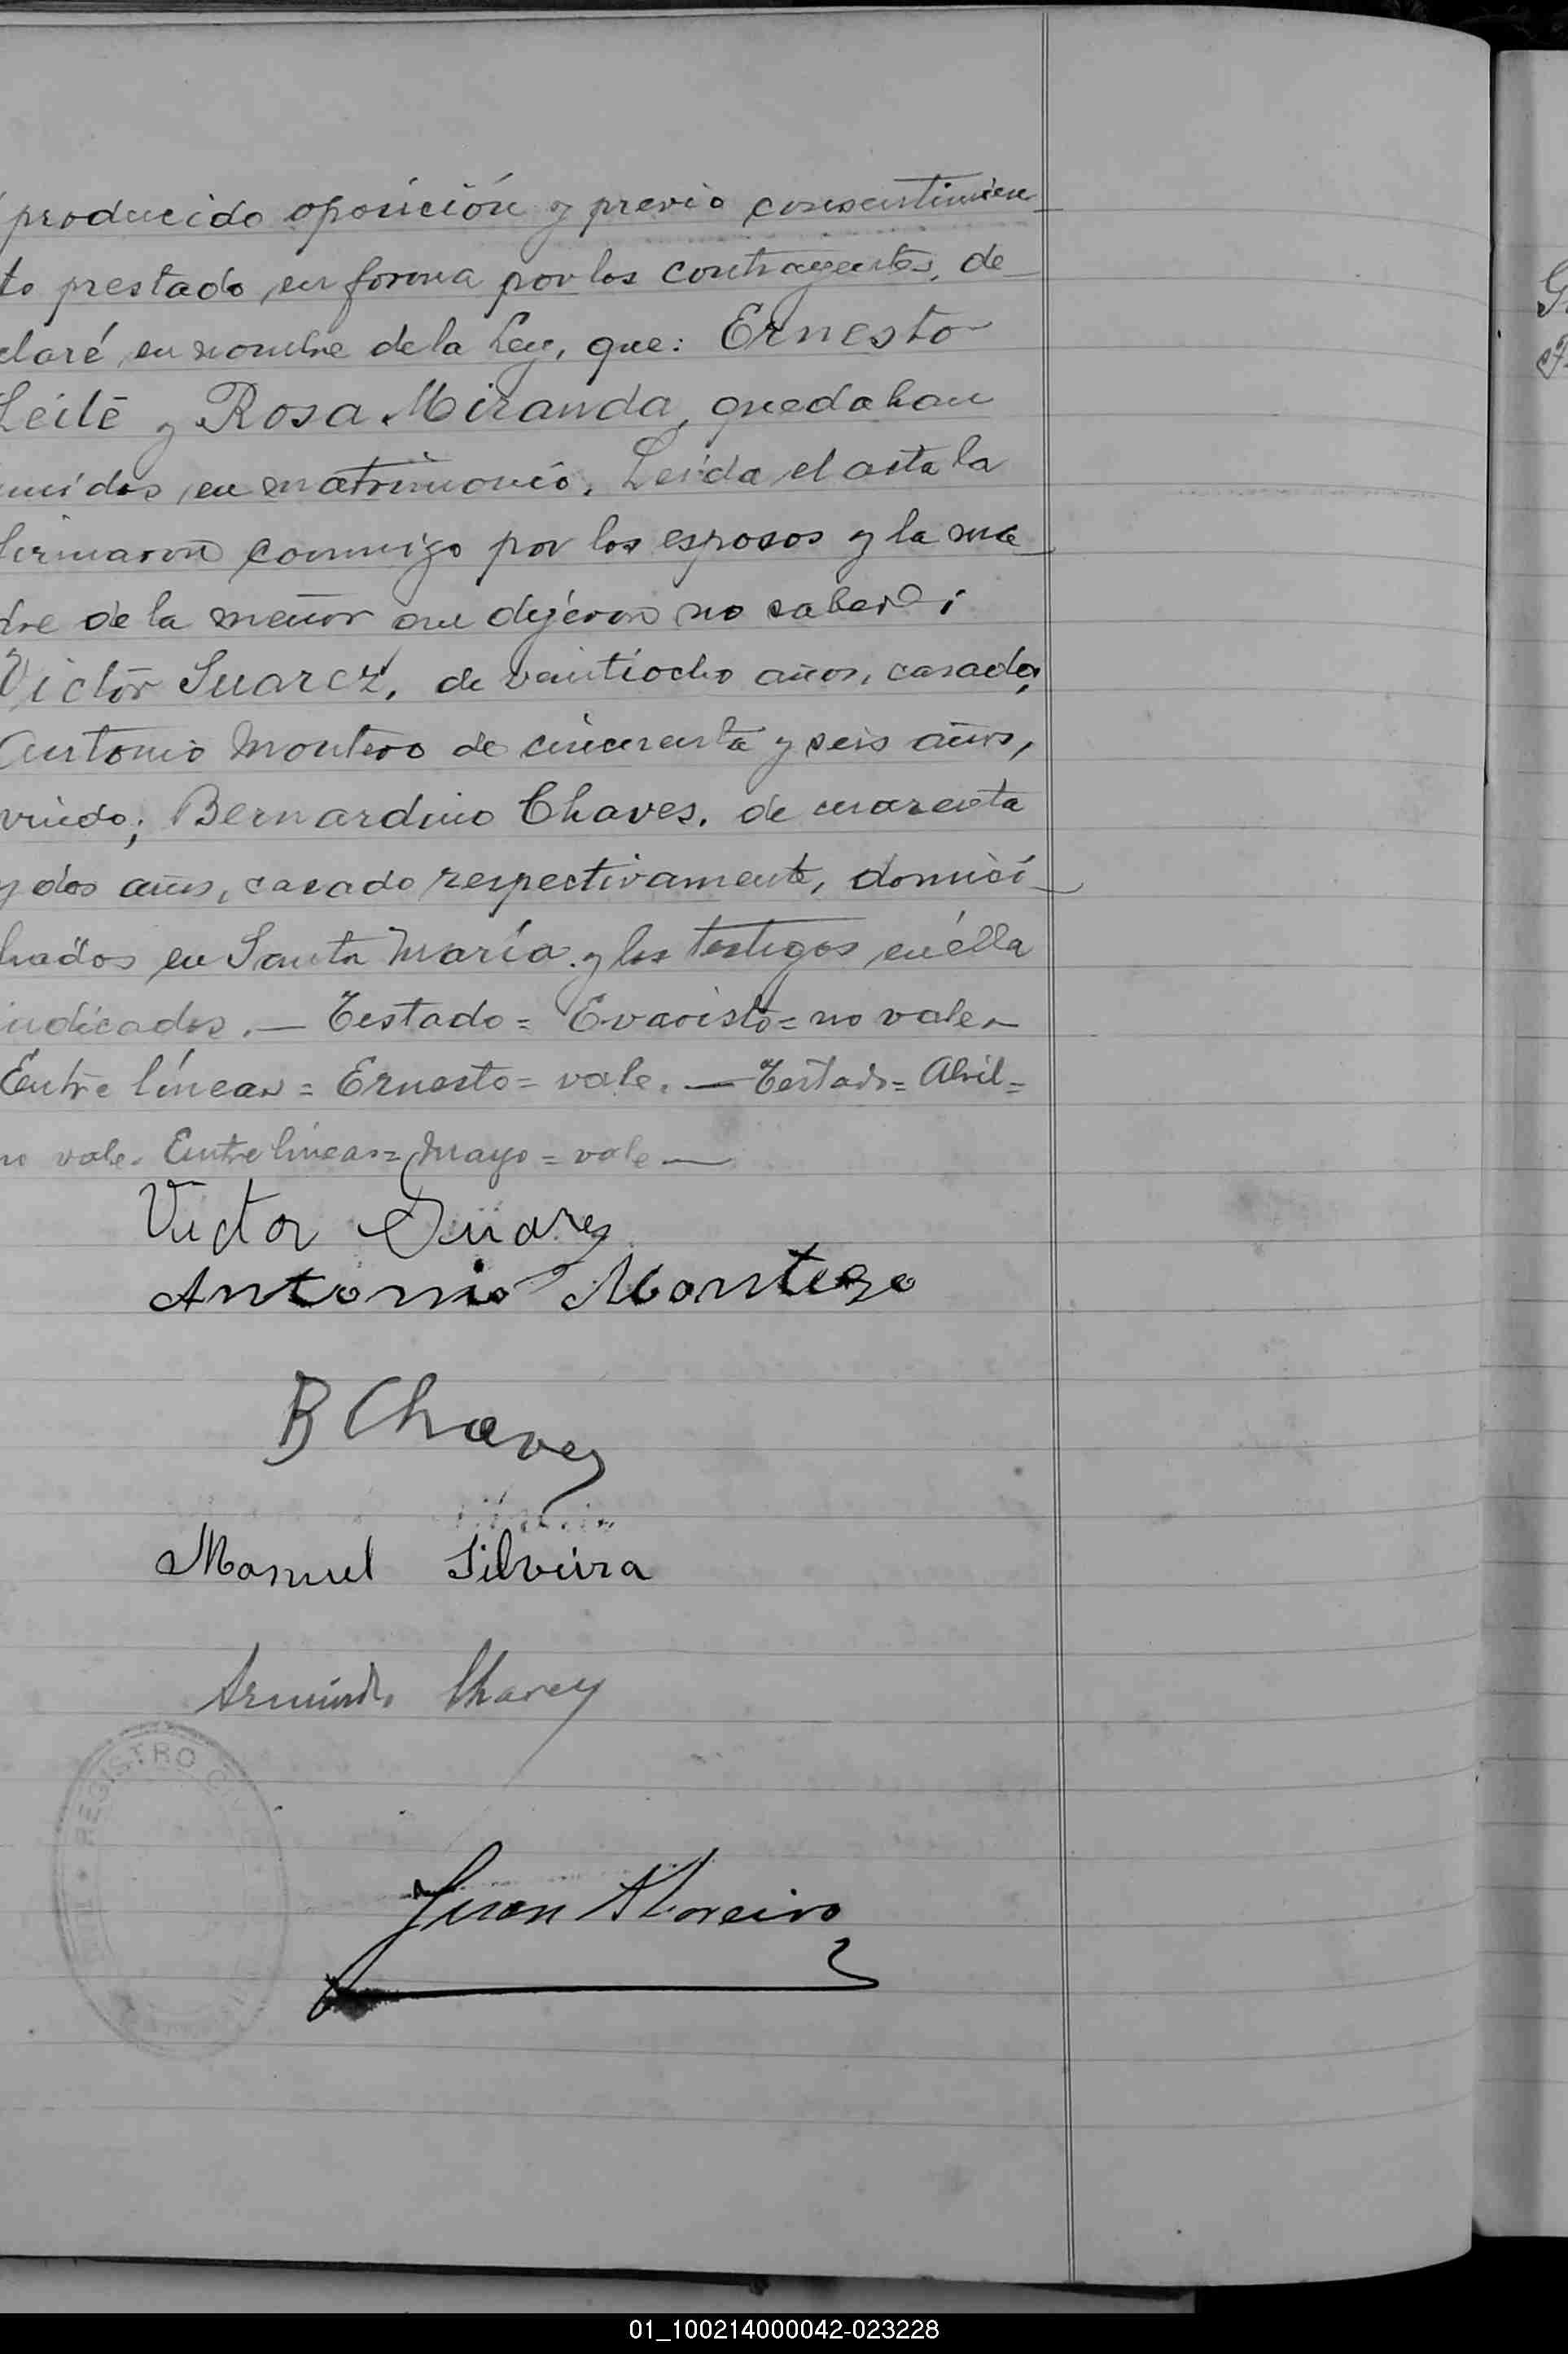 producido oposición y previo consentimien
to prestado en forma por los contrayentes, de
claré en nombre de la Ley, que: Ernesto
Leite y Rosa Miranda, quedaban
unidos en matrimonio. Leida el acta la
firmaron conmigo por los esposos y la ma
dre de la menor que dijeron no saber;
Victor Suarez, de veintiocho años, casado;
Antonio Montero de cincuenta y seis años,
viudo; Bernardino Chaves, de cuarenta
y dos años, casado respectivamente, domici
liados en Santa María y los testigos en élla
indicados. — Testado = Evaristo = no vale.
Entre líneas = Ernesto = vale. — Testado = Abril =
no vale. Entre líneas = Mayo = vale —
Victor Suarez
Antonio Montero
B Chaves
Manuel Silveira
Armindo Chaves
Juan Moreira
REGISTRO CIVIL
01_100214000042-023228